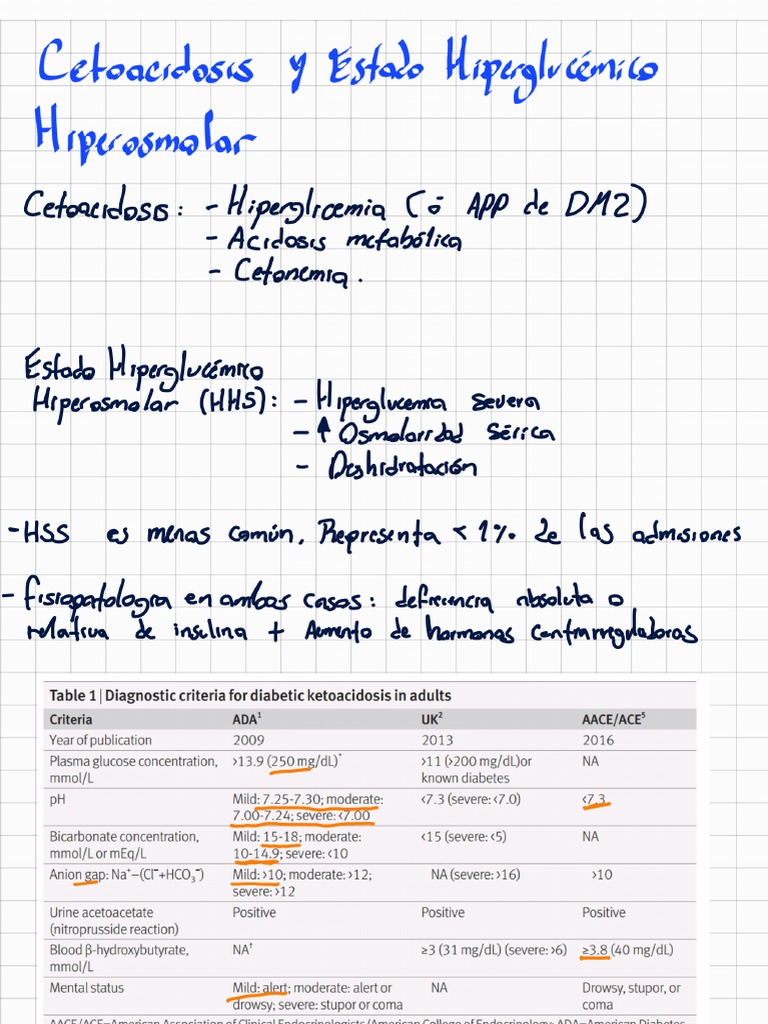 Cetoacidosis y Estado Hiperglucémico
Hiperosmolar
Cetoacidosis: - Hiperglicemia (ó APP de DM2)
- Acidosis metabólica
- Cetonemia.
Estado Hiperglucémico
Hiperosmolar (HHS): - Hiperglucemia severa
- ↑ Osmolaridad sérica
- Deshidratación
- HSS es menos común. Representa < 1% de las admisiones
- Fisiopatología en ambos casos: deficiencia absoluta o
relativa de insulina + Aumento de hormonas contrarreguladoras
Table 1 | Diagnostic criteria for diabetic ketoacidosis in adults
Criteria ADA¹ UK² AACE/ACE⁵
Year of publication 2009 2013 2016
Plasma glucose concentration, >13.9 (250 mg/dL)* >11 (>200 mg/dL)or NA
mmol/L known diabetes
pH Mild: 7.25-7.30; moderate: <7.3 (severe: <7.0) <7.3
7.00-7.24; severe: <7.00
Bicarbonate concentration, Mild: 15-18; moderate: <15 (severe: <5) NA
mmol/L or mEq/L 10-14.9; severe: <10
Anion gap: Na⁺−(Cl⁻+HCO₃⁻) Mild: >10; moderate: >12; NA (severe: >16) >10
severe: >12
Urine acetoacetate Positive Positive Positive
(nitroprusside reaction)
Blood β-hydroxybutyrate, NA† ≥3 (31 mg/dL) (severe: >6) ≥3.8 (40 mg/dL)
mmol/L
Mental status Mild: alert; moderate: alert or NA Drowsy, stupor, or
drowsy; severe: stupor or coma coma
AACE/ACE=American Association of Clinical Endocrinologists/American College of Endocrinology; ADA=American Diabetes